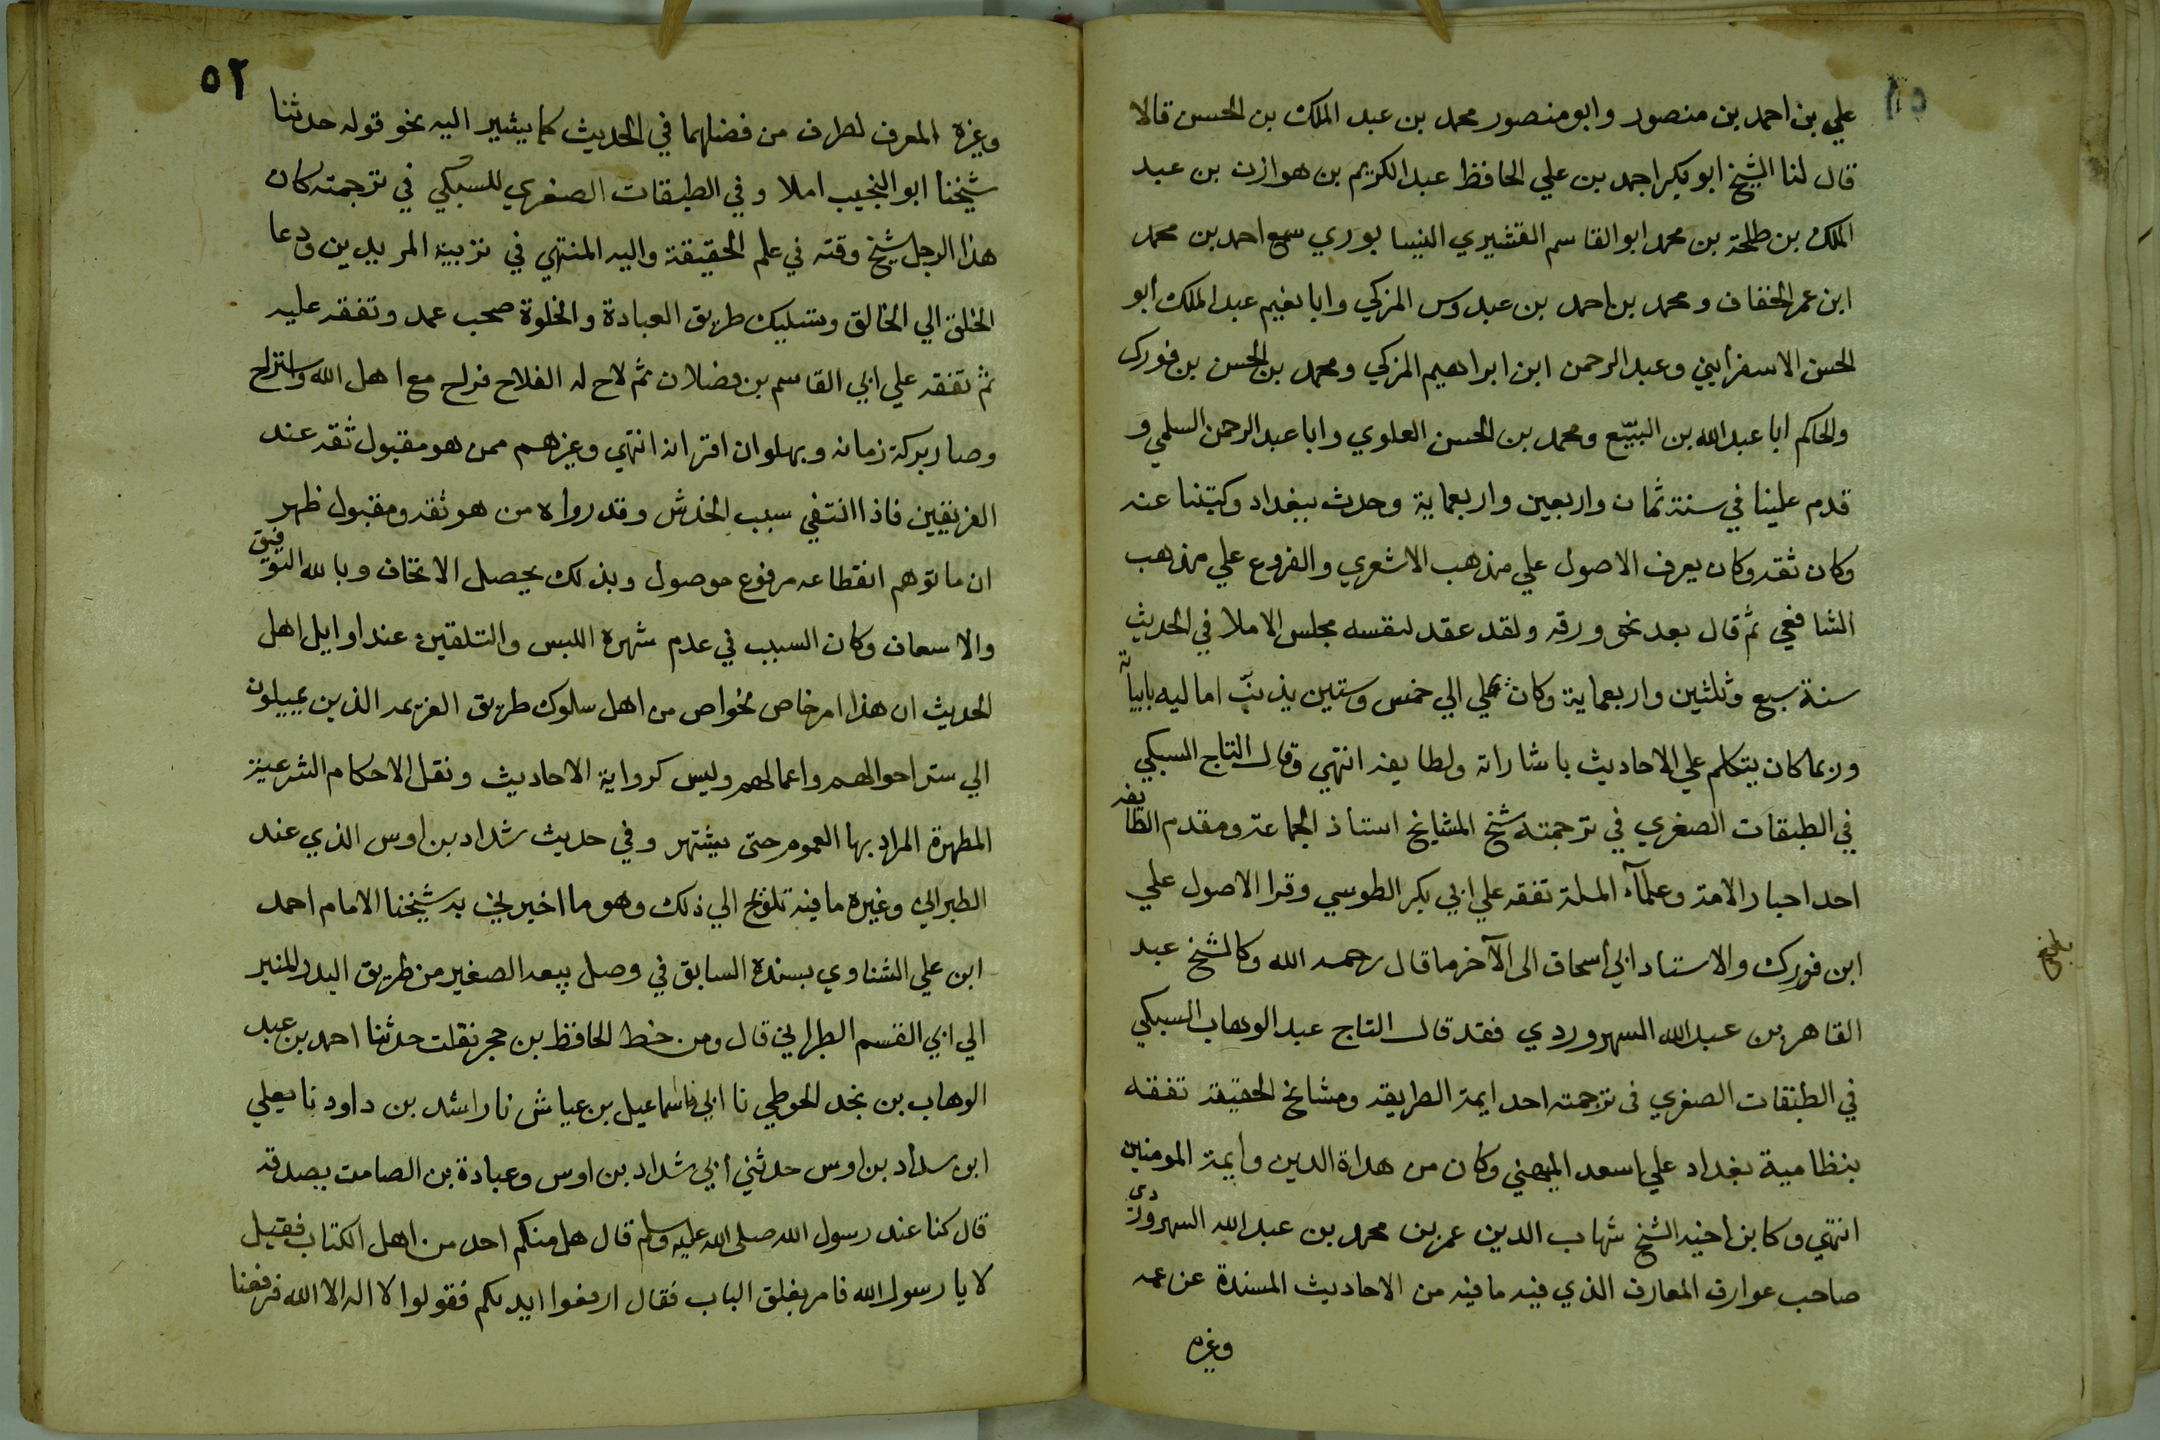 علي بن احمد بن منصور وابو منصور محمد بن عبد الملك بن الحسن قالا
قال لنا الشيخ ابو بكر احمد بن علي الحافظ عبد الكريم بن هوازن بن عبد
الملك بن طلحة بن محمد ابو القاسم القشيري النيسابوري سمع احمد بن محمد
ابن عمر الخفاف ومحمد بن احمد بن عبدوس المزكي وابا نعيم عبد الملك أبو
الحسن الاسفرايني وعبد الرحمن ابن ابراهيم المزكي ومحمد بن الحسن بن فورك
والحاكم ابا عبد الله بن البيّع ومحمد بن الحسن العلوي وابا عبد الرحمن السلمي و
قدم علينا في سنة ثمان واربعين واربعماية وحدث ببغداد وكتبنا عنه
وكان ثقه وكان يعرف الاصول علي مذهب الاشعري والفروع علي مذهب
الشافعي ثم قال بعد نحو ورقه ولقد عقد لنفسه مجلس الاملا في الحديث
سنة سبع وثلثين واربعماية وكان يملي الي خمس وستين يذنّب اماليه بابياته
وربما كان يتكلم علي الاحاديث باشاراته ولطايفه انتهي وقال التاج السبكي
في الطبقات الصغري في ترجمته شيخ المشايخ استاذ الجماعة ومقدم الطايفه
احد احبار الامة وعلمآء الملة تفقه علي ابي بكر الطوسي وقرا الاصول علي
ابن فورك والاستاد ابي أسحاق الى الآخر ما قال رحمه الله وكالشيخ عبد
القاهر بن عبد الله السهروردي فقد قال التاج عبد الوهاب السبكي
في الطبقات الصغري فى ترجمته احد ايمة الطريقه ومشايخ الحقيقة تفقه
بنظامية بغداد علي اسعد الميهني وكان من هداة الدين وأيمة المومنين
انتهي وكابن اخيه الشيخ شهاب الدين عمر بن محمد بن عبد الله السهروردى
صاحب عوارف المعارف الذي فيه ما فيه من الاحاديث المسندة عن عمه
وغيره
٥٢
وغيره المعرف لطرف من فضلهما في الحديث كما يشير اليه نحو قوله حدثنا
شيخنا ابو النجيب املا وفي الطبقات الصغري للسبكي في ترجمته كان
هذا الرجل شيخ وقته في علم الحقيقة واليه المنتهي في تربية المريدين ودعا
الخلق الي الخالق وتسليك طريق العبادة والخلوة صحب عمه وتفقه عليه
ثم تفقه علي ابي القاسم بن فضلان ثم لاح له الفلاح فراح مع اهل الله واستراح
وصار بركة زمانه وبهلوان اقرانه انتهي وغيرهم ممن هو مقبول ثقه عند
الفريقين فاذا انتفي سبب الخدش وقد رواه من هو ثقه ومقبول ظهر
ان ما توهم انقطاعه مرفوع موصول وبذلك يحصل الاتحاف وبالله التوفيق
والاسعاف وكان السبب في عدم شهرة اللبس والتلقين عند اوايل اهل
الحديث ان هذا امر خاص بخواص من اهل سلوك طريق العزيمه الذين يميلون
الي ستر احوالهم واعمالهم وليس كرواية الاحاديث ونقل الاحكام الشرعية
المطهرة المراد بها العموم حتى يشتهر وفي حديث شداد بن اوس الذي عند
الطبراني وغيره ما فيه تلويح الي ذلك وهو ما اخبرني به شيخنا الامام احمد
ابن علي الشناوي بسنده السابق في وصل بيعه الصغير من طريق البدر المنير
الي ابي القسم الطبراني قال ومن خط الحافظ بن حجر نقلت حدثنا احمد بن عبد
الوهاب بن نجد الحوطي نا ابي نا اسماعيل بن عياش نا راشد بن داود نا يعلي
ابن شداد بن اوس حدثني ابي شداد بن اوس وعبادة بن الصامت يصدقه
قال كنا عند رسول الله صلى الله عليه وسلم قال هل منكم احد من اهل الكتاب فقيل
لا يا رسول الله فامر بغلق الباب فقال ارفعوا ايديكم فقولوا لا اله الا الله فرفعنا